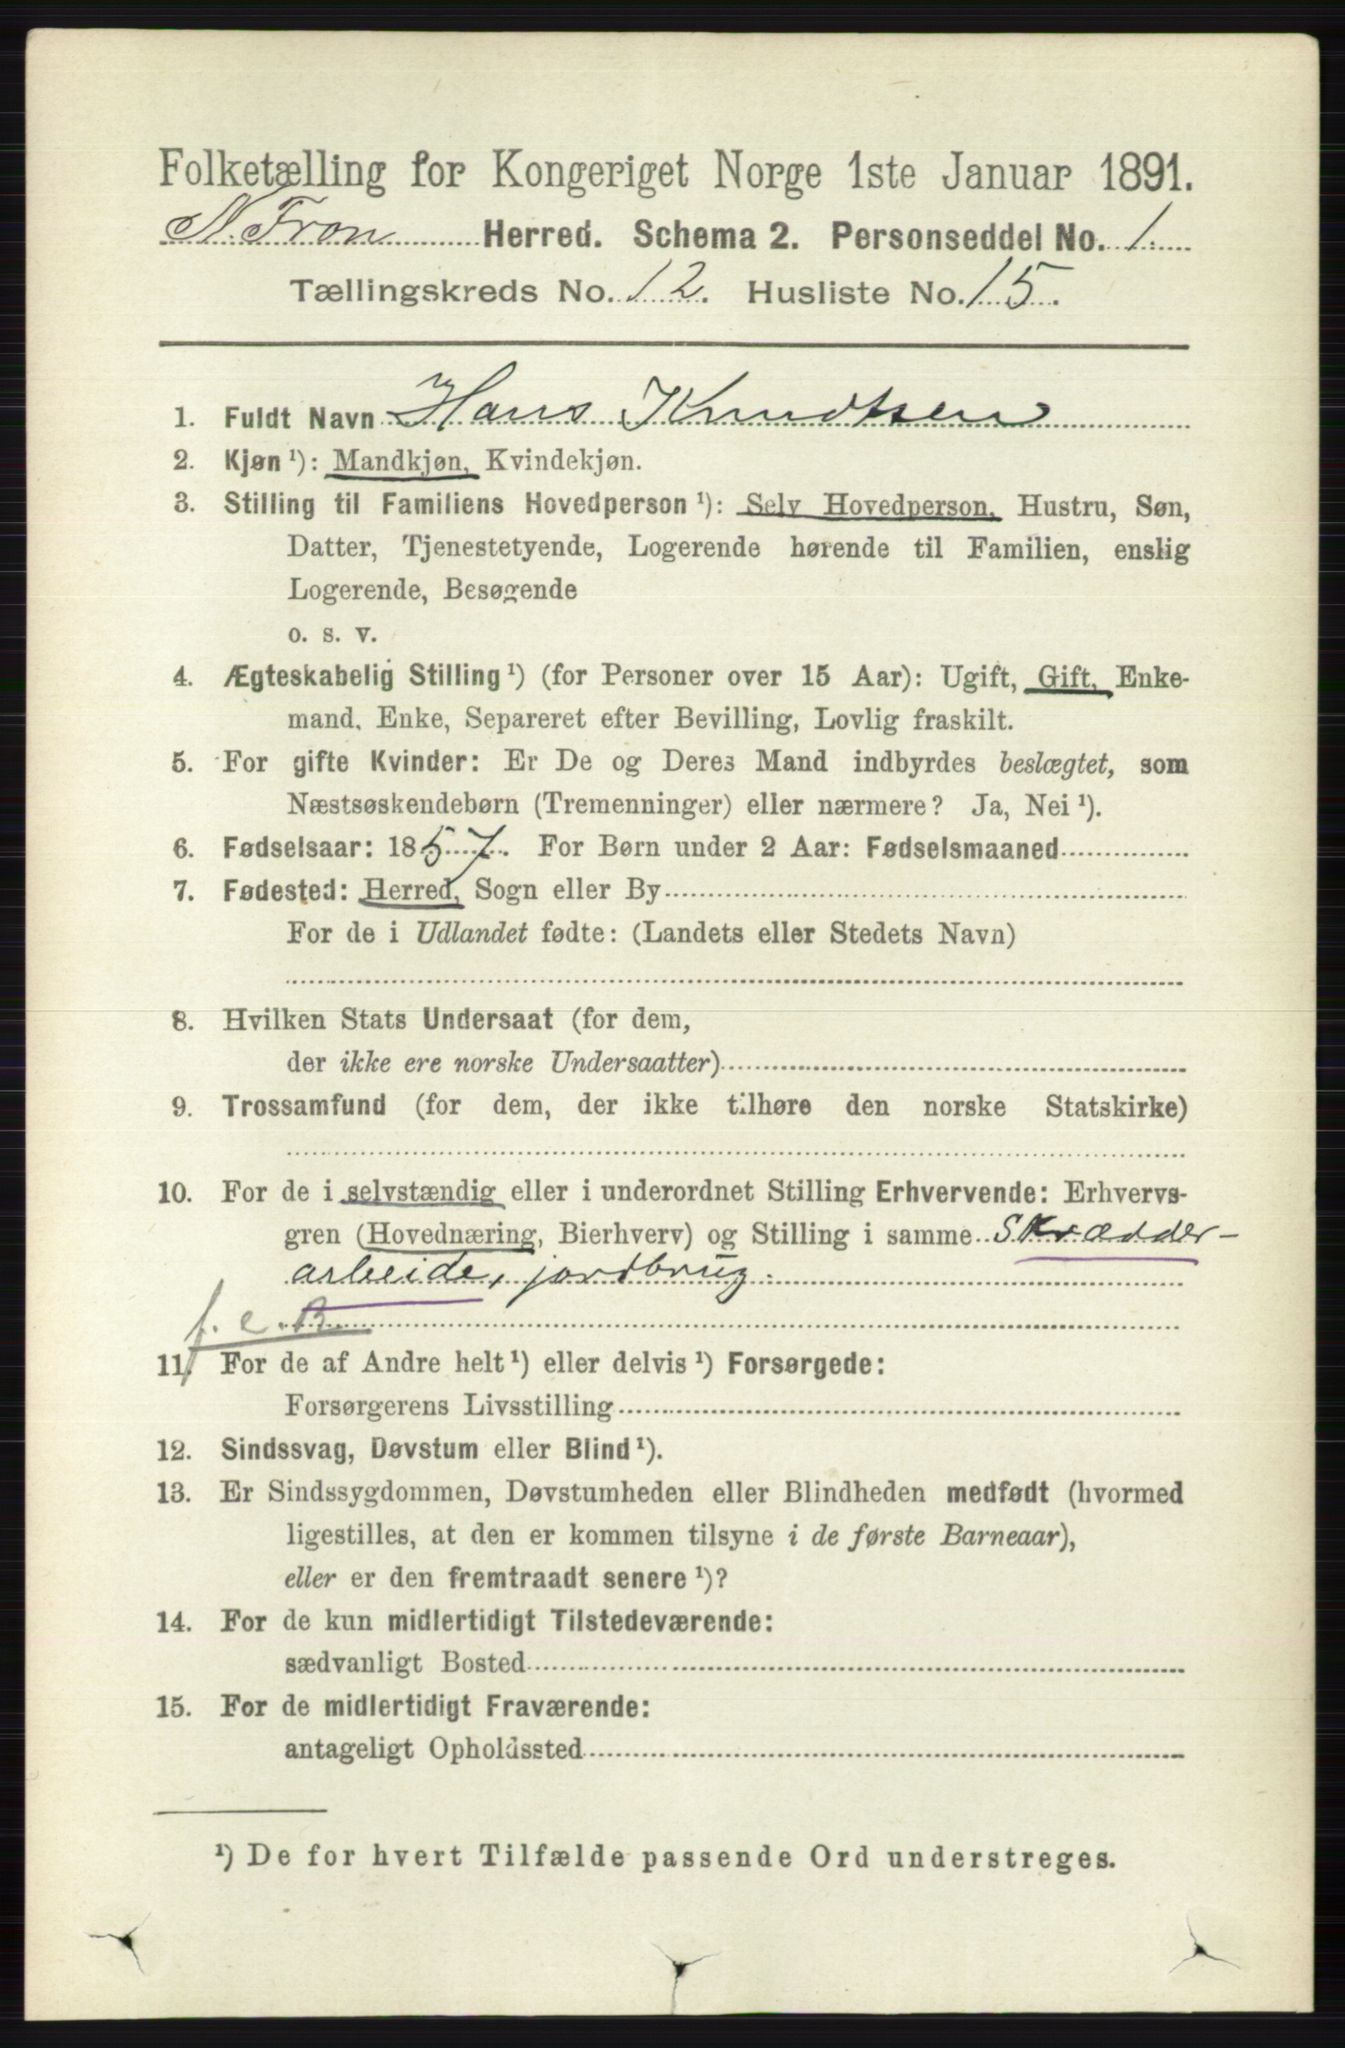 Folketælling for Kongeriget Norge 1ste Januar 1891.
N. Fron Herred. Schema 2. Personseddel No. 1.
Tællingskreds No. 12. Husliste No. 15.
1. Fuldt Navn Hans Knudtsen
2. Kjøn ¹): Mandkjøn, Kvindekjøn.
3. Stilling til Familiens Hovedperson ¹): Selv Hovedperson, Hustru, Søn,
Datter, Tjenestetyende, Logerende hørende til Familien, enslig
Logerende, Besøgende
o. s. v.
4. Ægteskabelig Stilling ¹) (for Personer over 15 Aar): Ugift, Gift, Enke-
mand, Enke, Separeret efter Bevilling, Lovlig fraskilt.
5. For gifte Kvinder: Er De og Deres Mand indbyrdes beslægtet, som
Næstsøskendebørn (Tremenninger) eller nærmere? Ja, Nei ¹).
6. Fødselsaar: 1857. For Børn under 2 Aar: Fødselsmaaned
7. Fødested: Herred, Sogn eller By
For de i Udlandet fødte: (Landets eller Stedets Navn)
8. Hvilken Stats Undersaat (for dem,
der ikke ere norske Undersaatter)
9. Trossamfund (for dem, der ikke tilhøre den norske Statskirke)
10. For de i selvstændig eller i underordnet Stilling Erhvervende: Erhvervs-
gren (Hovednæring, Bierhverv) og Stilling i samme Skrædder-
arbeide, jordbrug.
f. e. B.
11. For de af Andre helt ¹) eller delvis ¹) Forsørgede:
Forsørgerens Livsstilling
12. Sindssvag, Døvstum eller Blind ¹).
13. Er Sindssygdommen, Døvstumheden eller Blindheden medfødt (hvormed
ligestilles, at den er kommen tilsyne i de første Barneaar),
eller er den fremtraadt senere ¹)?
14. For de kun midlertidigt Tilstedeværende:
sædvanligt Bosted
15. For de midlertidigt Fraværende:
antageligt Opholdssted
¹) De for hvert Tilfælde passende Ord understreges.